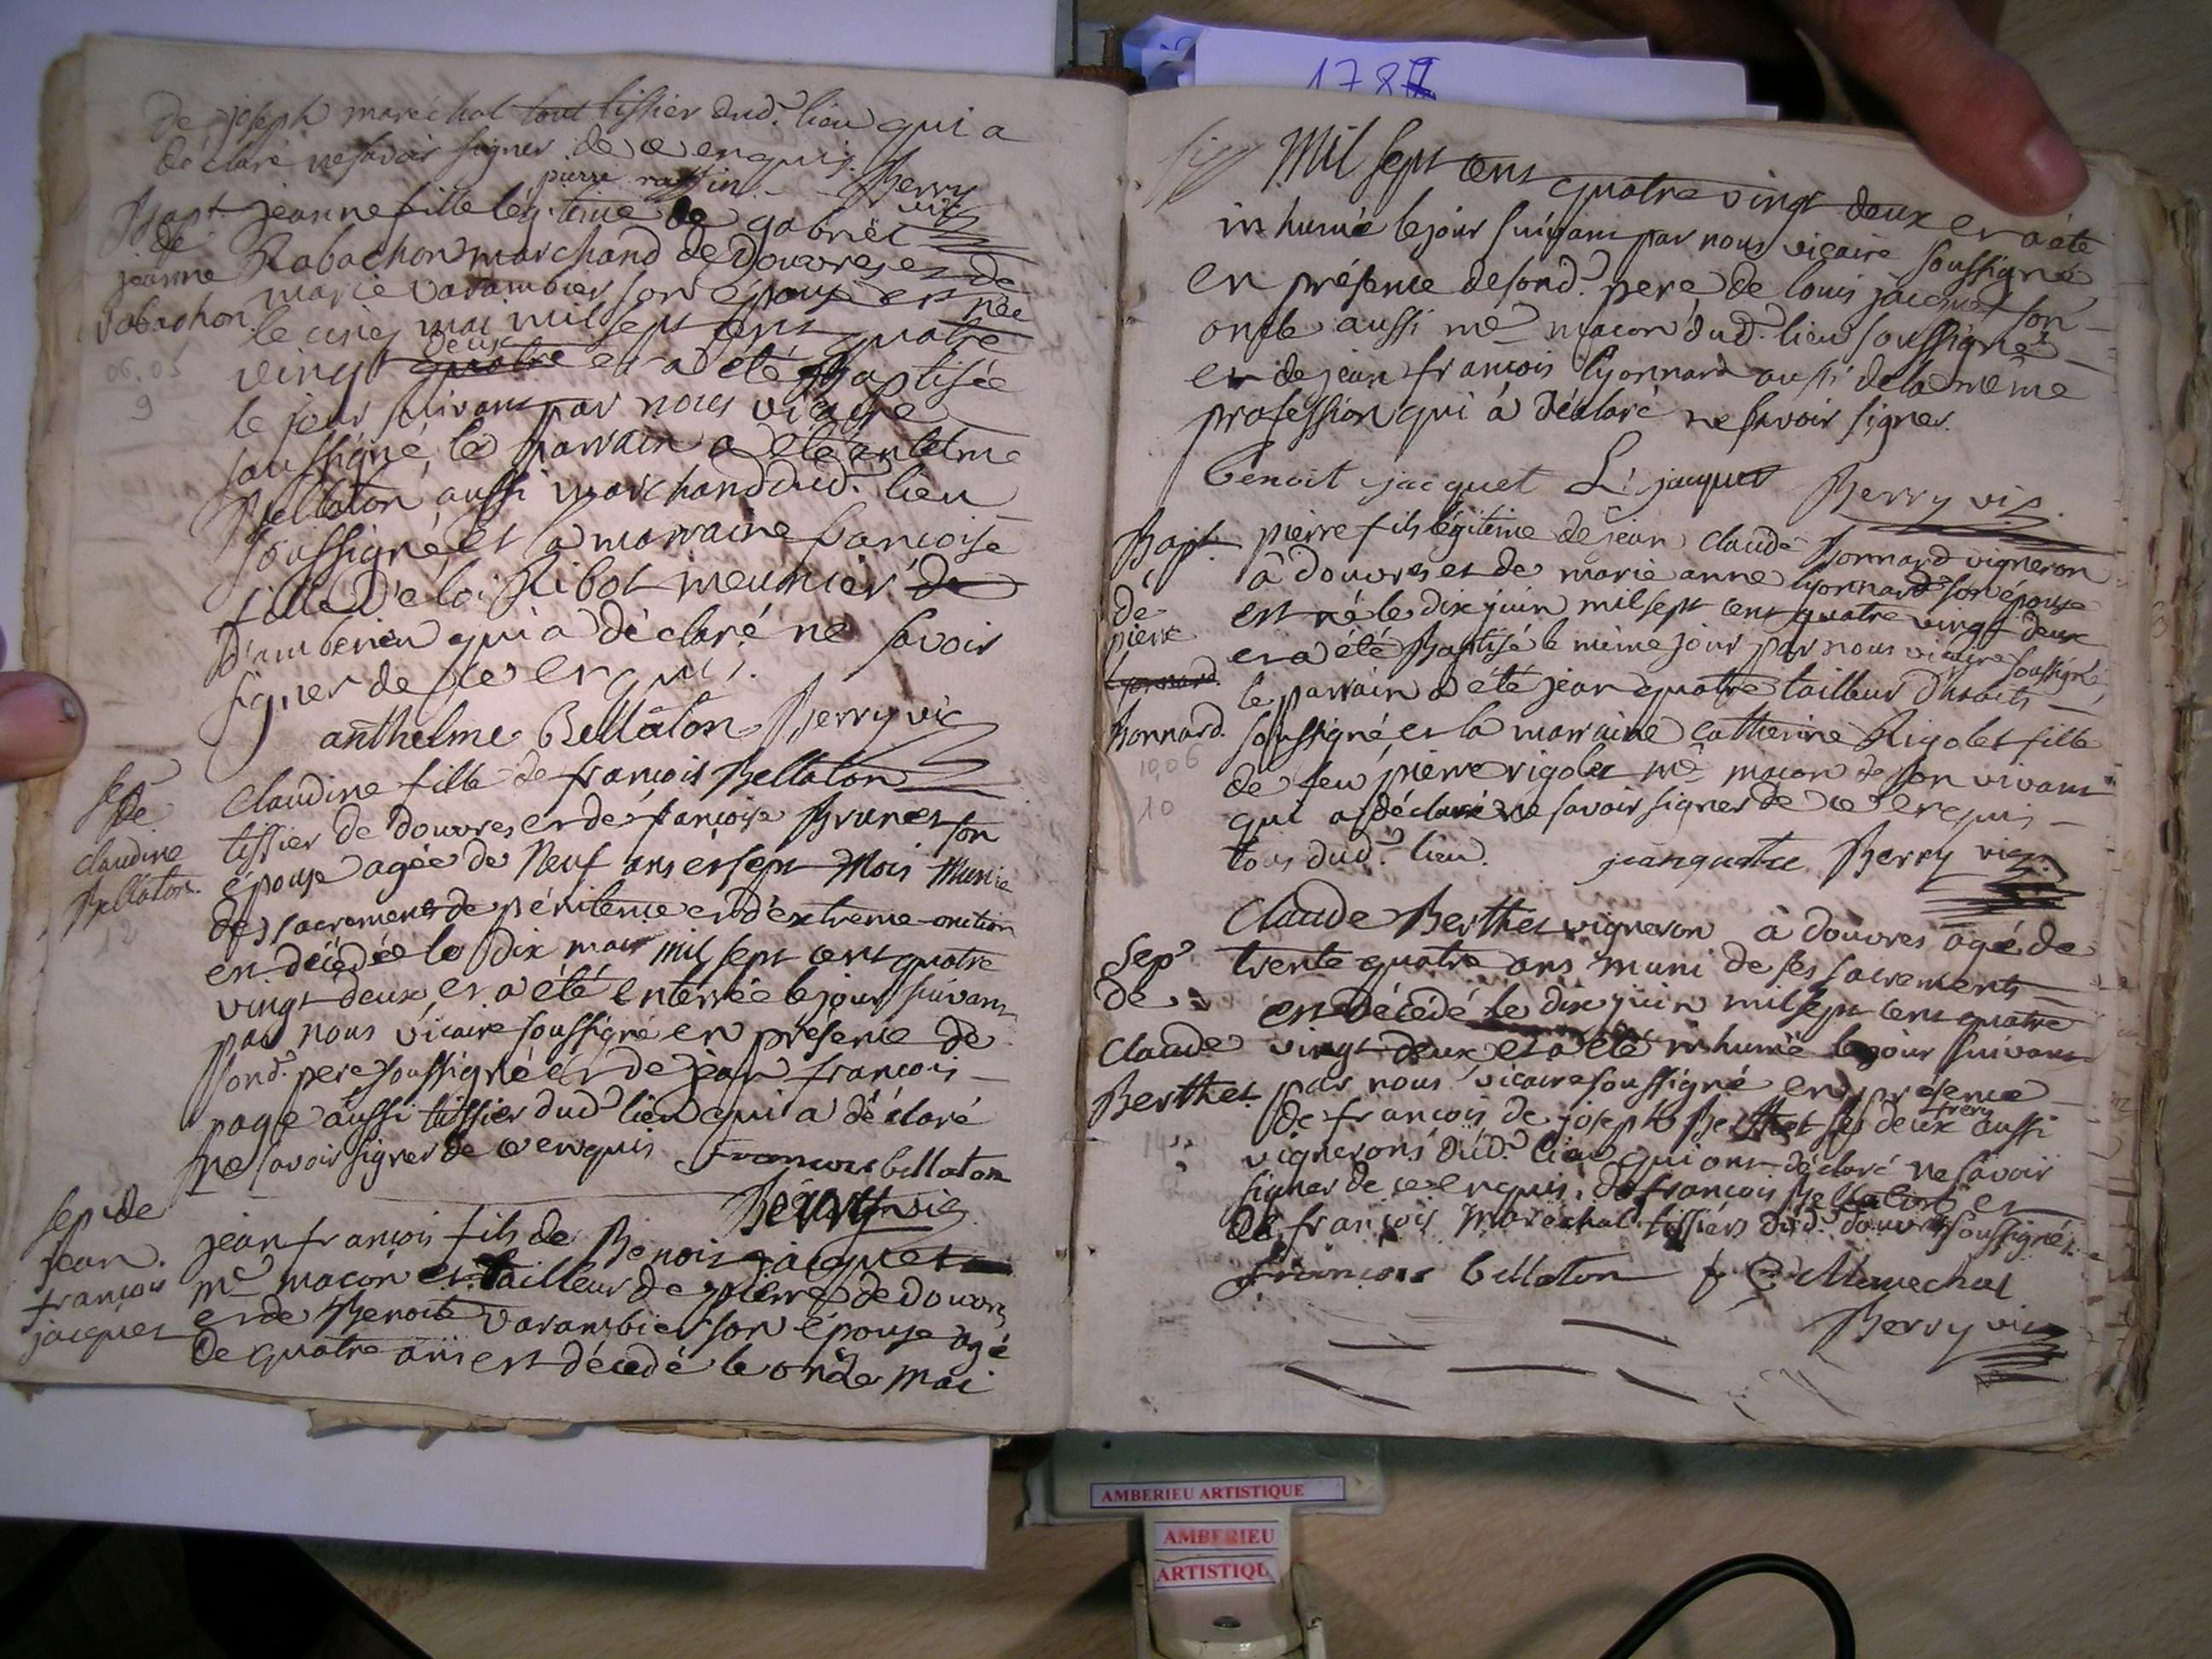 de joseph maréchal tout tissier dud.t lieu qui a
déclaré ne savoir signer de ce enquis.
pierre raffin Berry vic
Bapt. de jeanne rabachon
06.05
9
jeanne fille légitime de gabriel
Rabachon marchand de Douvres et de
marie varambier son épouse est née
le cinq mai mil sept cens quatre
vingt quatre deux et a été Baptisée
le jour suivant par nous vicaire
soussigné, le parrain a été antelme
Bellaton aussi marchand dud.t lieu
soussigné, et la marraine françoise
fille d'eloi Ribot meunier de
d'amberieu qui a déclaré ne savoir
signer de ce enquis.
anthelme Bellaton Berry vic
sep. de claudine Bellaton.
12
Claudine fille de françois Bellaton
tissier de douvres et de françoise Brunet son
épouse agée de Neuf ans et sept Mois Munie
des sacrements de pénitence et d'extreme-onction
est décédée le dix mai mil sept cens quatre
vingt deux, et a été enterrée le jour suivant
par nous vicaire soussigné en présence de
sond.t pere soussigné et de jean françois
page aussi tissier dud.t lieu qui a déclaré
ne savoir signer de ce enquis francois bellaton
Berry vic
sep. de jean françois jacquet
jean françois fils de Benoit jacquet
m.e maçon et tailleur de pierre de Douvres
et de Benoite varambier son épouse agé
de quatre ans est décédé le onze mai
1782
Mil sept cens quatre vingt deux et a été
inhumé le jour suivant par nous vicaire soussigné
en présence de sond.t pere de louis jacquet son
oncle aussi m.e maçon dud.t lieu soussignés
et de jean françois lyonnard aussi de la même
profession qui a déclaré ne savoir signer.
benoit jacquet L. jacquet Berry vic.
Bapt. de pierre lyonnard. Bonnard.
10,06
10
pierre fils légitime de jean claude Bonnard vigneron
à douvres et de marie anne lyonnard son épouse
est né le dix juin mil sept cens quatre vingt deux
et a été Baptisé le même jour par nous vicaire soussigné,
le parrain a été jean quatre tailleur d'habits
soussigné, et la marraine Catherine Rigolet fille
de feu pierre rigolet m.e maçon de son vivant
qui a déclaré ne savoir signer de ce enquis
tous dud.t lieu. jean quatre Berry vic.
Sep. de Claude Berthet
Claude Berthet vigneron à douvres agé de
trente quatre ans muni de ses sacrements
est décédé le dix juin mil sept cens quatre
vingt deux et a été inhumé le jour suivant
par nous vicaire soussigné en présence
de françois de joseph Berthet ses deux freres aussi
vignerons dud.t lieu qui ont déclaré ne savoir
signer de ce enquis, de françois Bellaton et
de françois Maréchal tissiers dud.t douvres soussignés.
françois bellaton f Marechal
Berry vic
AMBERIEU ARTISTIQUE
AMBERIEU
ARTISTIQU